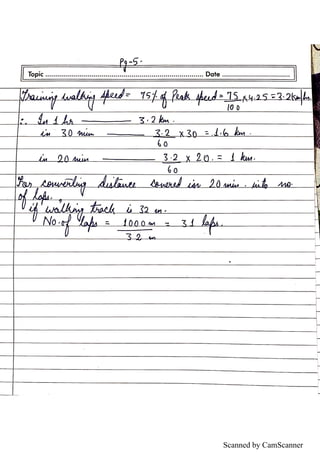 Pg-5-
Topic Date
Training walking speed = 75% of Peak speed = 75/100 x 4.25 = 3.2km/hr
∴ In 1 hr — 3.2 km.
in 30 min — 3.2/60 x 30 = 1.6 km.
in 20 min — 3.2/60 x 20. = 1 km.
For converting distance covered in 20 min. into no.
of laps.
if walking track is 32 m.
No. of laps = 1000 m/32 m = 31 laps.
Scanned by CamScanner